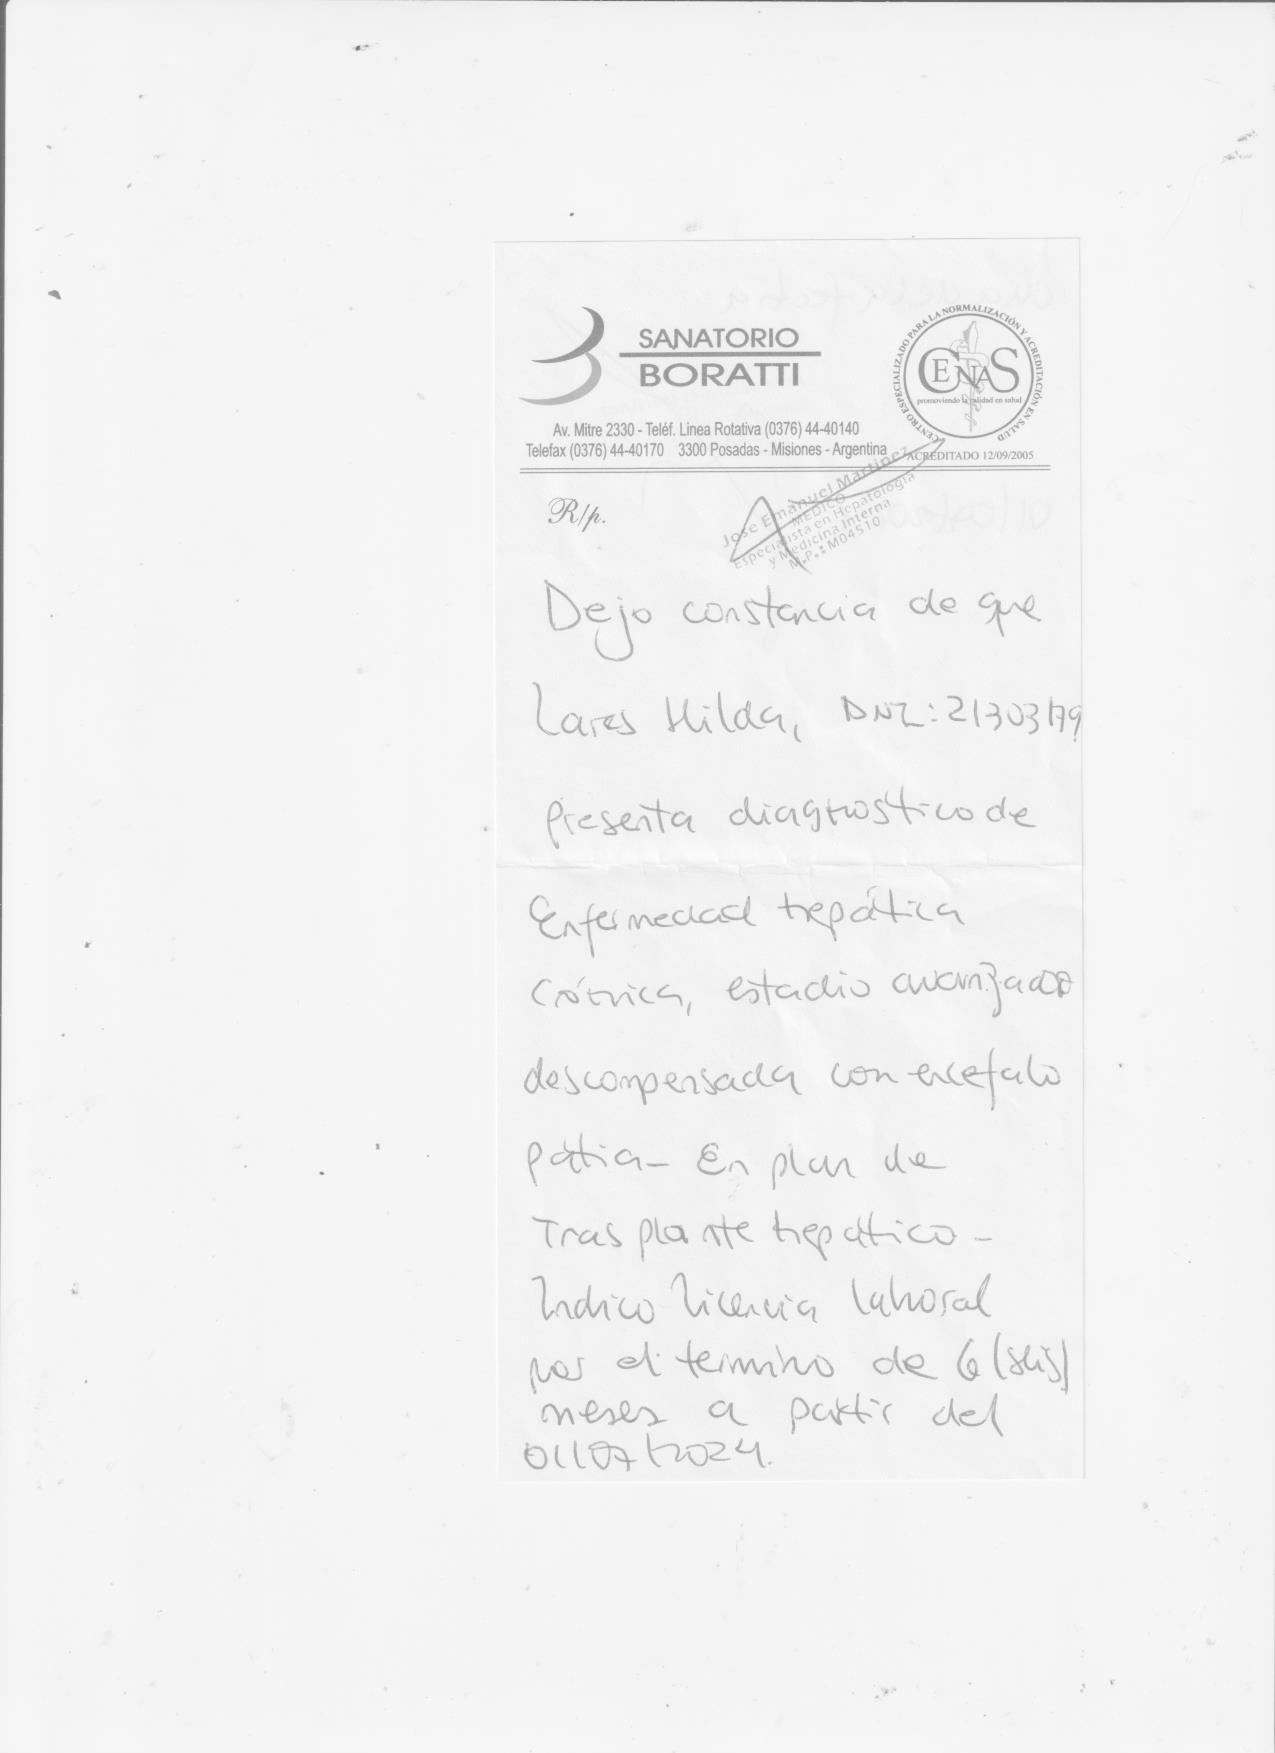 SANATORIO
BORATTI
CENTRO ESPECIALIZADO PARA LA NORMALIZACIÓN Y ACREDITACIÓN EN SALUD
CENAS
promoviendo la calidad en salud
ACREDITADO 12/09/2005
Av. Mitre 2330 - Teléf. Linea Rotativa (0376) 44-40140
Telefax (0376) 44-40170 3300 Posadas - Misiones - Argentina
R/p.
Jose Emanuel Martinez
MEDICO
Especialista en Hepatologia
y Medicina Interna
M.P.: M04510
Dejo constancia de que
Lares Hilda, DNI: 21303179
presenta diagnostico de
Enfermedad hepática
Crónica, estadio avanzado
descompensada con encefalo
pátia - En plan de
Trasplante hepático -
Indico licencia laboral
por el termino de 6 (seis)
meses a partir del
01/07/2024.